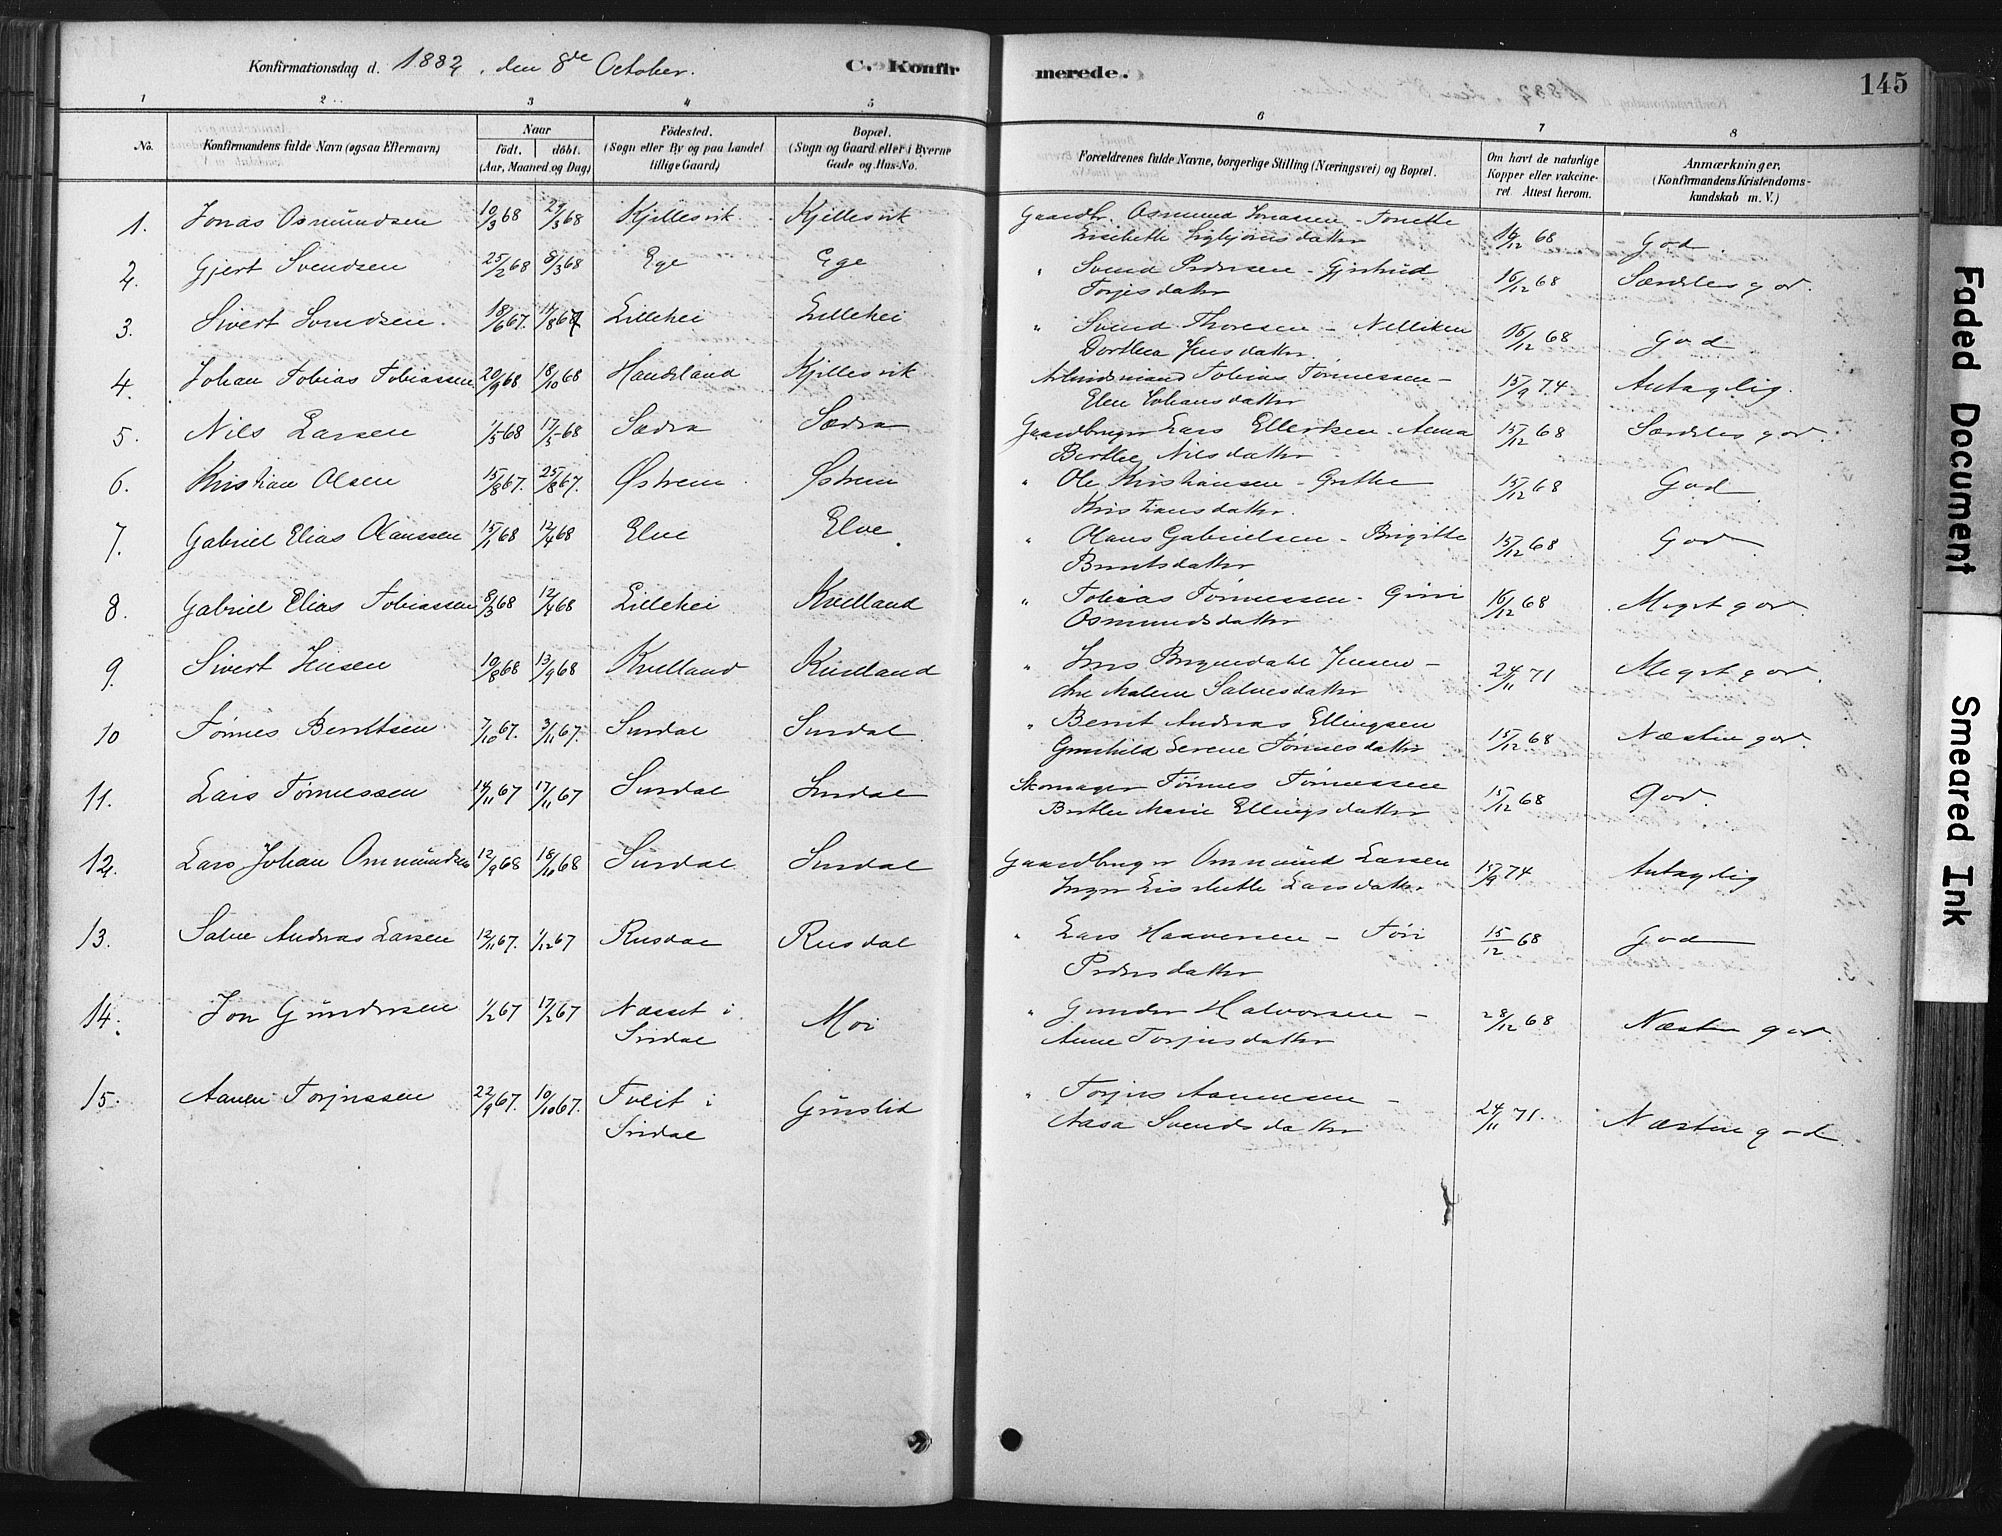 Konfirmationsdag d. 1882, den 8de October.
C. Konfirmerede.
145
1 2 3 4 5 6 7 8
No.
Konfirmandens fulde Navn (ogsaa Efternavn)
Naar
födt. döbt.
(Aar, Maaned og Dag)
Födested.
(Sogn eller By og paa Landet
tillige Gaard)
Bopæl.
(Sogn og Gaard eller i Byerne
Gade og Hus-No.
Forældrenes fulde Navne, borgerlige Stilling (Næringsvei) og Bopæl.
Om havt de naturlige
Kopper eller vakcine-
ret. Attest herom.
Anmærkninger,
(Konfirmandens Kristendoms-
kundskab m. V.)
1. Jonas Osmundsen 10/3 68 29/3 68 Kjellesvik Kjellesvik Gaardbr. Osmund Jonassen - Tonette 16/12 68 God.
Lisebette Sigbjørnsdatter
2. Gjert Svendsen 25/2 68 8/3 68 Ege Ege " Svend Pedersen - Gjertrud 16/12 68 Særdeles god.
Torjesdatter
3. Sivert Svendsen. 18/6 67. 11/8 67 Lillehei Lillehei " Svend Thoresen - Nelliken 16/12 68 God
Dorthea Jensdatter.
4. Johan Tobias Tobiassen 20/9 68 18/10 68 Handeland Kjellesvik Arbeidsmand Tobias Tønnessen - 15/9 74. Antagelig.
Elen Johansdatter
5. Nils Larsen 1/5 68 17/5 68 Sædra Sædra Gaardbruger Lars Ellertsen - Anna 15/12 68 Særdeles god.
Berthe Nilsdatter
6. Kristian Olsen 15/8 67. 25/8 67. Østrem Østrem " Ole Kristiansen - Grethe 15/12 68 God
Kristiansdatter.
7. Gabriel Elias Olaussen 15/1 68 12/4 68 Elve Elve. " Olaus Gabrielsen - Birgitte 15/12 68 God.
Berntsdatter
8. Gabriel Elias Tobiassen 8/3 68 12/4 68 Lillehei Kvelland " Tobias Tønnessen - Guri 16/12 68 Meget god.
Osmundsdatter
9. Sivert Jensen 10/8 68 13/9 68 Kvelland Kvelland " Jens Jensen - 24/11 71 Meget god.
Ane Malene Salvesdatter
10 Tønnes Berntsen 7/10 67. 3/11 67. Surdal Surdal " Bernt Andreas Ellingsen 15/12 68 Næsten god.
Gunhild Serene Tønnesdatter
11. Lars Tønnessen 14/11 67 17/11 67 Surdal Surdal Skomager Tønnes Tønnessen 15/12 68 God.
Berthe Marie Ellingsdatter
12. Lars Johan Ommundsen 12/9 68 18/10 68 Surdal Surdal Gaardbruger Ommund Larsen 15/9 74 Antagelig
Inger Lisebette Larsdatter
13. Salve Andreas Larsen 12/11 67. 1/12 67 Rusdal Rusdal " Lars Haaversen - Tøri 15/12 68 God
Pedersdatter
14. Jon Gundersen 1/2 67 17/2 67 Næsset i Moi " Gunder Halvorsen - 28/12 68 Næsten god.
Sirdal Anne Torjusdatter
15. Aanen Torjussen 22/9 67. 10/10 67. Tveit i Gunslid " Torjus Aanensen - 24/11 71. Næsten god.
Sirdal Aasa Svendsdatter
Faded Document
Smeared Ink